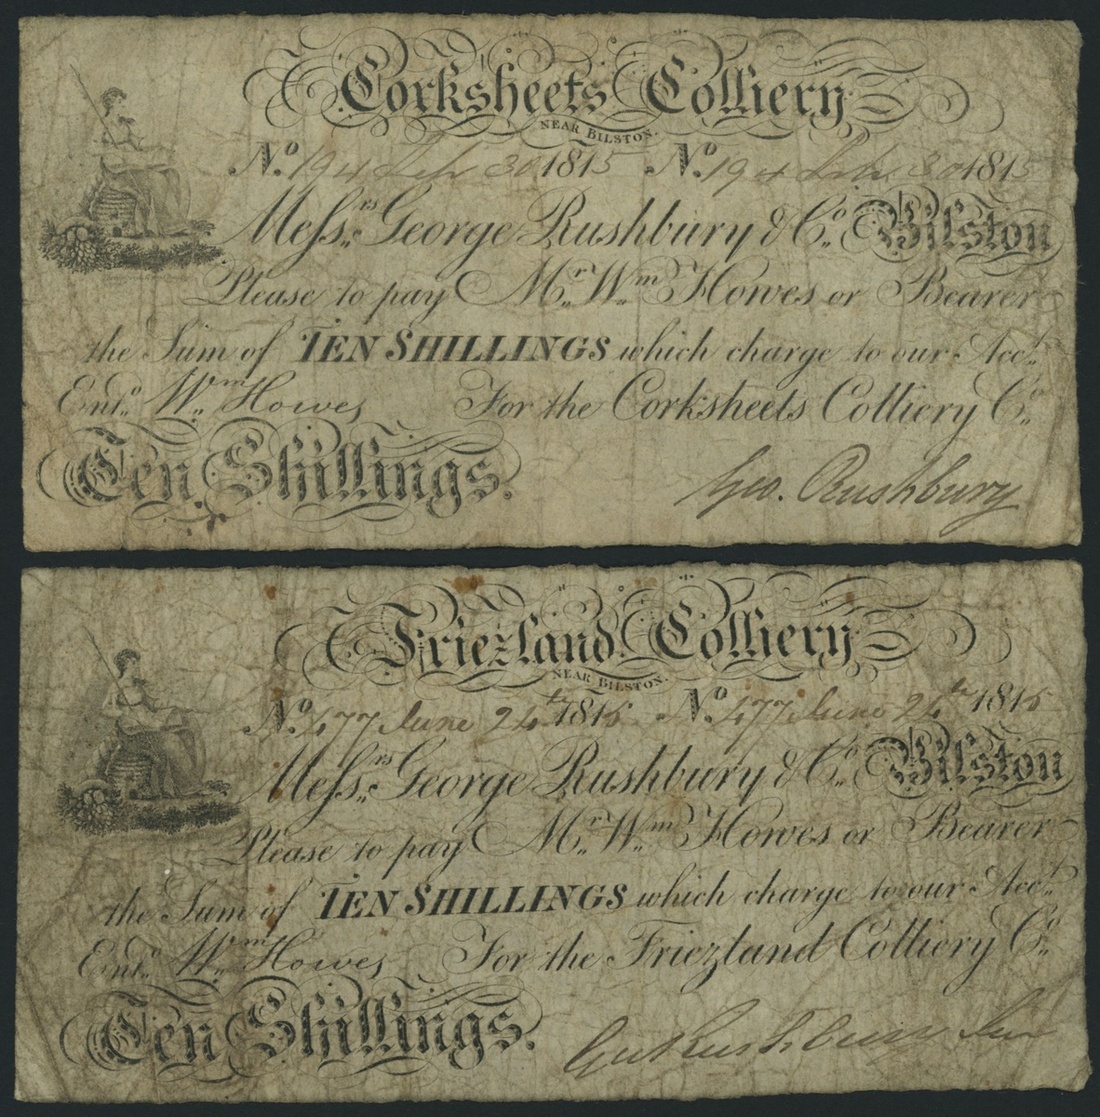 Corksheets Colliery
NEAR BILSTON.
No. 194 Sep 30 1815 No. 194 Sep. 30 1815
Messrs. George Rushbury & Co. Bilston
Please to pay Mr. Wm. Howes or Bearer
the Sum of TEN SHILLINGS which charge to our Acct.
Entd. Wm. Howes For the Corksheets Colliery Co.
Ten Shillings. Geo. Rushbury
Friezland Colliery
NEAR BILSTON.
No. 477 June 24th 1816 No. 477 June 24th 1816
Messrs. George Rushbury & Co. Bilston
Please to pay Mr. Wm. Howes or Bearer
the Sum of TEN SHILLINGS which charge to our Acct.
Entd. Wm. Howes For the Friezland Colliery Co.
Ten Shillings. Rushbury